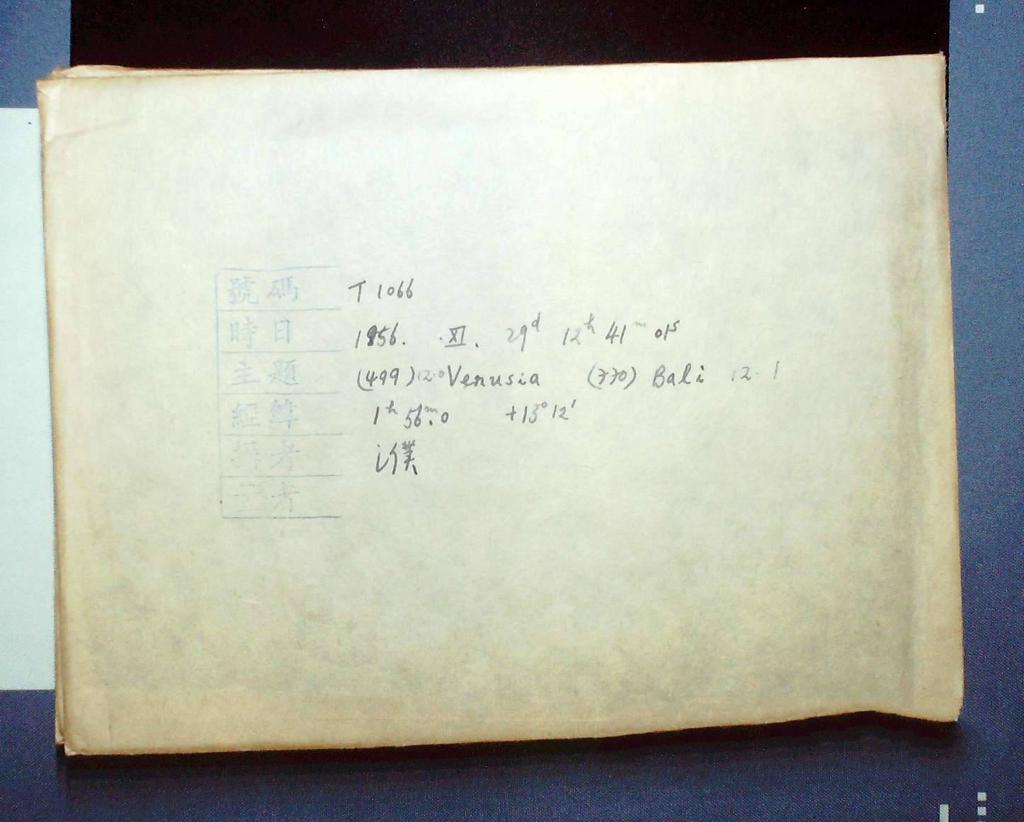 號碼 T 1066
時日 1956. XI. 29d 12h 41m 01s
主題 (499) 12.0 Venusia (770) Bali 12.1
經緯 1h 56m.0 +13° 12'
者
者